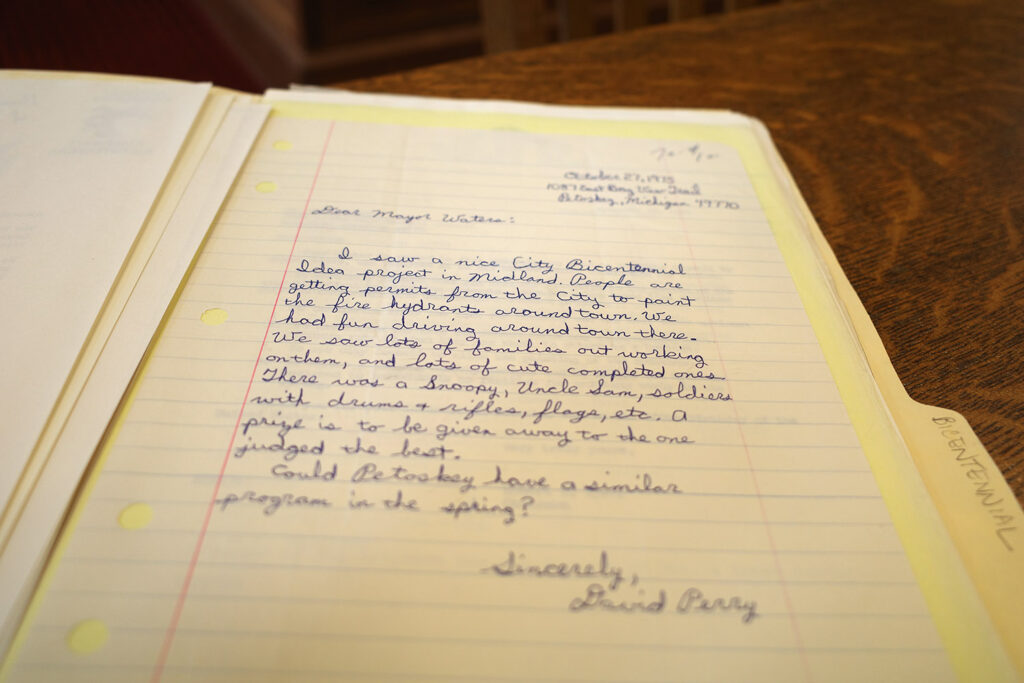 October 27, 1975
1087 East Bay View Trail
Petoskey, Michigan 49770
Dear Mayor Waters:
I saw a nice City Bicentennial
Idea project in Midland. People are
getting permits from the City to paint
the fire hydrants around town. We
had fun driving around town there.
We saw lots of families out working
on them, and lots of cute completed ones.
There was a Snoopy, Uncle Sam, soldiers
with drums & rifles, flags, etc. A
prize is to be given away to the one
judged the best.
Could Petoskey have a similar
program in the spring?
Sincerely,
David Perry
BICENTENNIAL